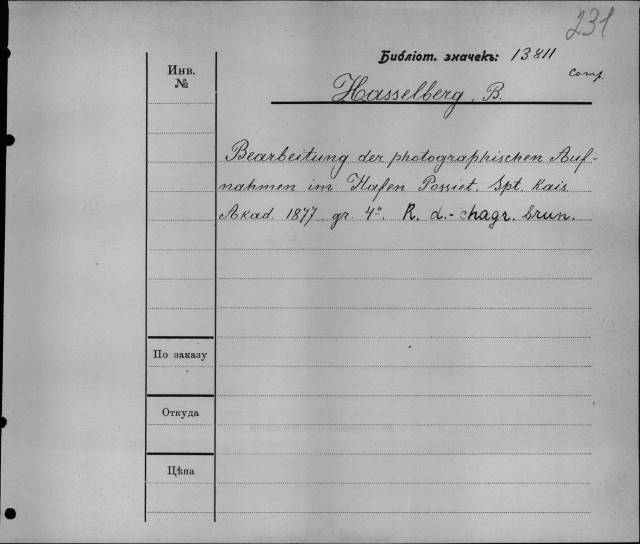 231
Библіот. значекъ: 13811
comp.
Инв.
№
Hasselberg, B.
Bearbeitung der photographischen Auf-
nahmen im Hafen Possiet. Spt. Kais.
Akad. 1877 gr. 4°. R. d.- chagr. brun.
По заказу
Откуда
Цѣна